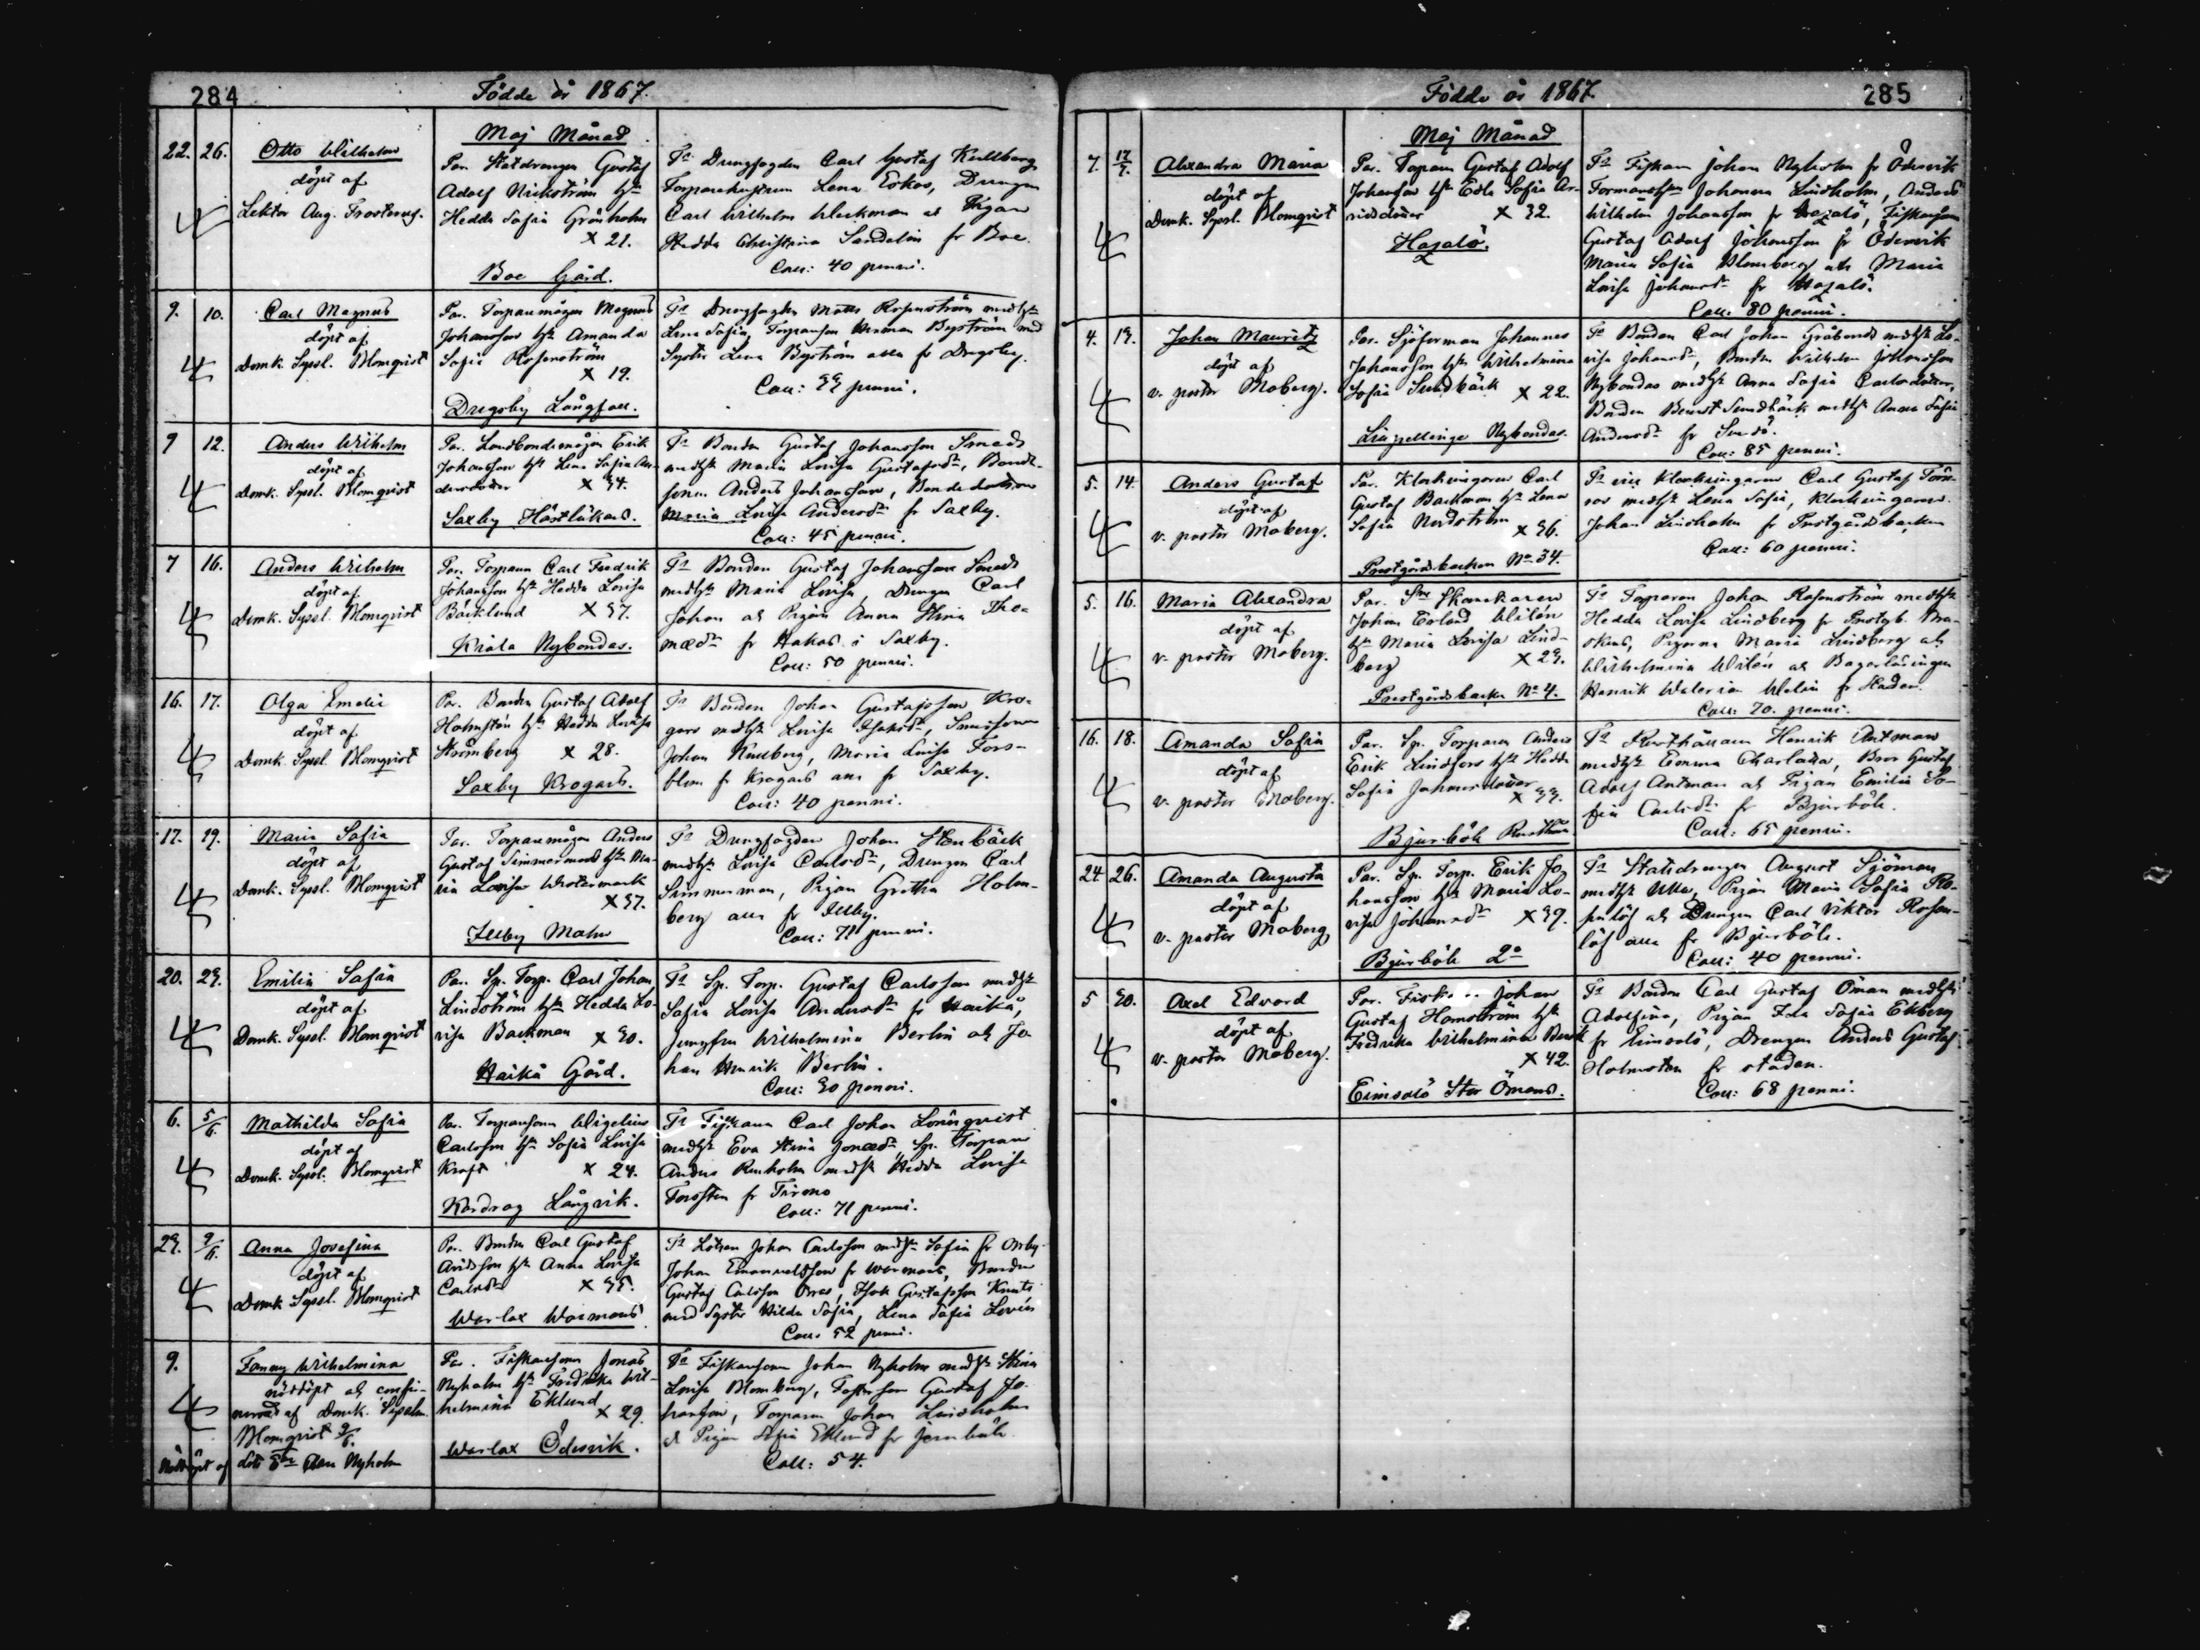 284
Födde år 1867.
Maj Månad
22. 26. Otto Wilhelm
döpt af
Lektor Aug. Frosterus.
Par. Statdrengen Gustaf
Adolf Nickström hst
Hedda Sofia Grönholm
x 21.
Boe Gård.
Ft Drengfogden Carl Gustaf Kullberg
Torparehustrun Lena Eskos, Drengen
Carl Wilhelm Weckman at Pigan
Hedda Christina Sandelin fr Boe.
Coll: 40 penni.
9. 10. Carl Magnus
döpt af
Domk. Syssl. Blomqvist
Par. Torparemågen Magnus
Johansson hst Amanda
Sofia Rosenström
x 19.
Drägsby Långfall.
Ft Drengfogden Matts Rosenström medhst
Lena Sofia, Torparson Herman Byström med
Syster Lena Byström alla fr Dregsby.
Coll: 33 penni.
9 12. Anders Wilhelm
döpt af
Domk. Syssl. Blomqvist
Par. Landbondemågen Erik
Johansson hst Lena Sofia An-
dersdotter x 34.
Saxby Hästlükars.
Ft Bonden Gustaf Johansson Smeds
medhst Maria Lovisa Gustafsdr, Bonde-
sonen Anders Johansson, Bondedottren
Maria Lovisa Andersdr fr Saxby.
Coll: 45 penni.
7 16. Anders Wilhelm
döpt af
Domk. Syssl. Blomqvist
Par. Torparen Carl Fredrik
Johansson hst Hedda Lovisa
Bäcklund x 37.
Kiala Nybondas.
Ft Bonden Gustaf Johansson Smeds
medhst Maria Lovisa, Drengen Carl
Johan at Pigan Anna Stina Tho-
mædr fr Hakas i Saxby.
Coll: 50 penni.
16. 17. Olga Emelie
döpt af
Domk. Syssl. Blomqvist
Par. Bonden Gustaf Adolf
Holmstén hst Hedda Lovisa
Strömberg x 28.
Saxby Krogars.
Ft Bonden Johan Gustafsson Kro-
gars medhst Lovisa Isaksdr, Smedsonen
Johan Kullberg, Maria Lovisa Fors-
blom fr Krogars alla fr Saxby.
Coll: 40 penni.
17. 19. Maria Sofia
döpt af
Domk. Syssl. Blomqvist
Par. Torparemågen Anders
Gustaf Simmerman hst Ma-
ria Lovisa Westermark
x 37.
Illby Malm
Ft Drengfogden Johan Stenbäck
medhst Lovisa Carlsdr, Drengen Carl
Simmerman, Pigan Gretha Holm-
berg alla fr Illby.
Coll: 71 penni.
20. 23. Emilia Sofia
döpt af
Domk. Syssl. Blomqvist
Par. Sp. Torp. Carl Johan
Lindström hst Hedda Lo-
visa Backman x 30.
Haikå Gård.
Ft Sp. Torp. Gustaf Carlsson medhst
Sofia Lovisa Andersdr fr Haikå,
Jungfru Wilhelmina Berlin at Jo-
han Henrik Berlin.
Coll: 30 penni.
6. 5/6. Mathilda Sofia
döpt af
Domk. Syssl. Blomqvist
Par. Torparsonen Wigelius
Carlsson hst Sofia Lovisa
Kraft x 24.
Kardrag Långvik.
Ft Fiskaren Carl Johan Lönnqvist
medhst Eva Stina Jonædr Sp. Torparen
Anders Renholm medhst Hedda Lovisa
Forsstén fr Tirmo
Coll: 71 penni.
23. 9/6. Anna Josefina
döpt af
Domk. Syssl. Blomqvist
Par. Bonden Carl Gustaf
Aridsson hst Anna Lovisa
Carlsdr x 35.
Warlax Warmans
Ft Lotsen Johan Carlsson medhst Sofia fr Orrby
Johan Emanuelsson fr Warmans, Bonden
Gustaf Carlsson Orras, Isak Gustafsson Knuts
med Syster Hilda Sofia, Lena Sofia Lovén
Coll: 52 penni.
9. Fanny Wilhelmina
nöddöpt at confir-
merad af Domk. Sysslm.
Blomqvist 9/6.
Nöddöpt af
Par. Fiskarsonen Jonas
Nyholm hst Fredrika Wil-
helmina Eklund
x 29.
Warlax Ödesvik.
Ft Fiskarsonen Johan Nyholm medhst Stina
Lovisa Blomberg, Gustaf Jo-
hansson, Torparen Johan Lindholm
at Pigan Sofia Eklund fr Jernböle
Coll: 54.
Födde år 1867.
285
Maj Månad
7. 17/7. Alexandra Maria
döpt af
Domk. Syssl. Blomqvist
Par. Torparen Gustaf Adolf
Johansson hst Edla Sofia Ar-
vidsdotter x 32.
Hasalö.
Ft Fiskaren Johan Nyholm fr Ödesvik
Johanna Lindholm, Anders
Wilhelm Johansson fr Hasalö, Fiskarson
Gustaf Adolf Johansson fr Ödesvik
Maria Sofia Blomberg at Maria
Lovisa Johansdr fr Hasalö.
Coll: 80 penni.
4. 19. Johan Mauritz
döpt af
v. pastor Moberg.
Par. Sjöforman Johannes
Johansson hst Wilhelmina
Sofia Sundbäck x 22.
Nybondas.
Ft Bonden Carl Johan Gråbonds medhst Lo-
visa Johansdr, Bonden Wilhelm Johansson
Nybondas medhst Anna Sofia Carlsdotter,
Bonden Bernst Sundbäck medhst Anna Sofia
Andersdr fr Sundö.
Coll: 85 penni.
5. 14. Anders Gustaf
döpt af
v. pastor Moberg.
Par. Klockringaren Carl
Gustaf Backman hst Lena
Sofia Nordström x 36.
Prestgårdsbacken No 34.
Ft Klockringaren Carl Gustaf Törn-
ros medhst Lena Sofia, Klockringaren
Johan Lindholm fr Prestgårdsbacken
Coll: 60 penni.
5. 16. Maria Alexandra
döpt af
v. pastor Moberg.
Par. Skomakaren
Johan Erland Wilén
hst Maria Lovisa Lind-
berg x 23.
Prestgårdsbacken No 4.
Ft Torparen Johan Rosenström medhst
Hedda Lovisa Lindberg fr Prestgb. Ma-
skens, Pigorna Maria Lindberg at
Wilhelmina Wilén at Bagarlärlingen
Henrik Walerian Welin fr staden.
Coll: 70. penni.
16. 18. Amanda Sofia
döpt af
v. pastor Moberg.
Par. Sp. Torparen Anders
Erik Lindfors hst Hedda
Sofia Johansdotter
x 33.
Bjurböle Rusthåll
Ft Rusthållaren Henrik Antman
medhst Emma Charlotta, Bror Gustaf
Adolf Antman at Pigan Emilia So-
fia Carlsdr fr Bjurböle.
Coll: 65 penni.
24. 26. Amanda Augusta
döpt af
v. pastor Moberg
Par. Sp. Torp. Erik Jo-
hansson hst Maria Lo-
visa Johansdr x 39.
Bjurböle 2o
Ft Statdrengen August Sjöman
medhst Ulla, Pigan Maria Sofia Ro-
senlöf at Drengen Carl Viktor Rosen-
löf alla fr Bjurböle.
Coll: 40 penni.
5 30. Axel Edvard
döpt af
v. pastor Moberg.
Par. Johan
Gustaf Holmström hst
Fredrika Wilhelmina Bäck
x 42.
Eimsalö Stor Ömans.
Ft Bonden Carl Gustaf Öman medhst
Adolfina, Pigan Ida Sofia Ekberg
fr Eimsalö, Drengen Anders Gustaf
Holmsten fr staden.
Coll: 68 penni.